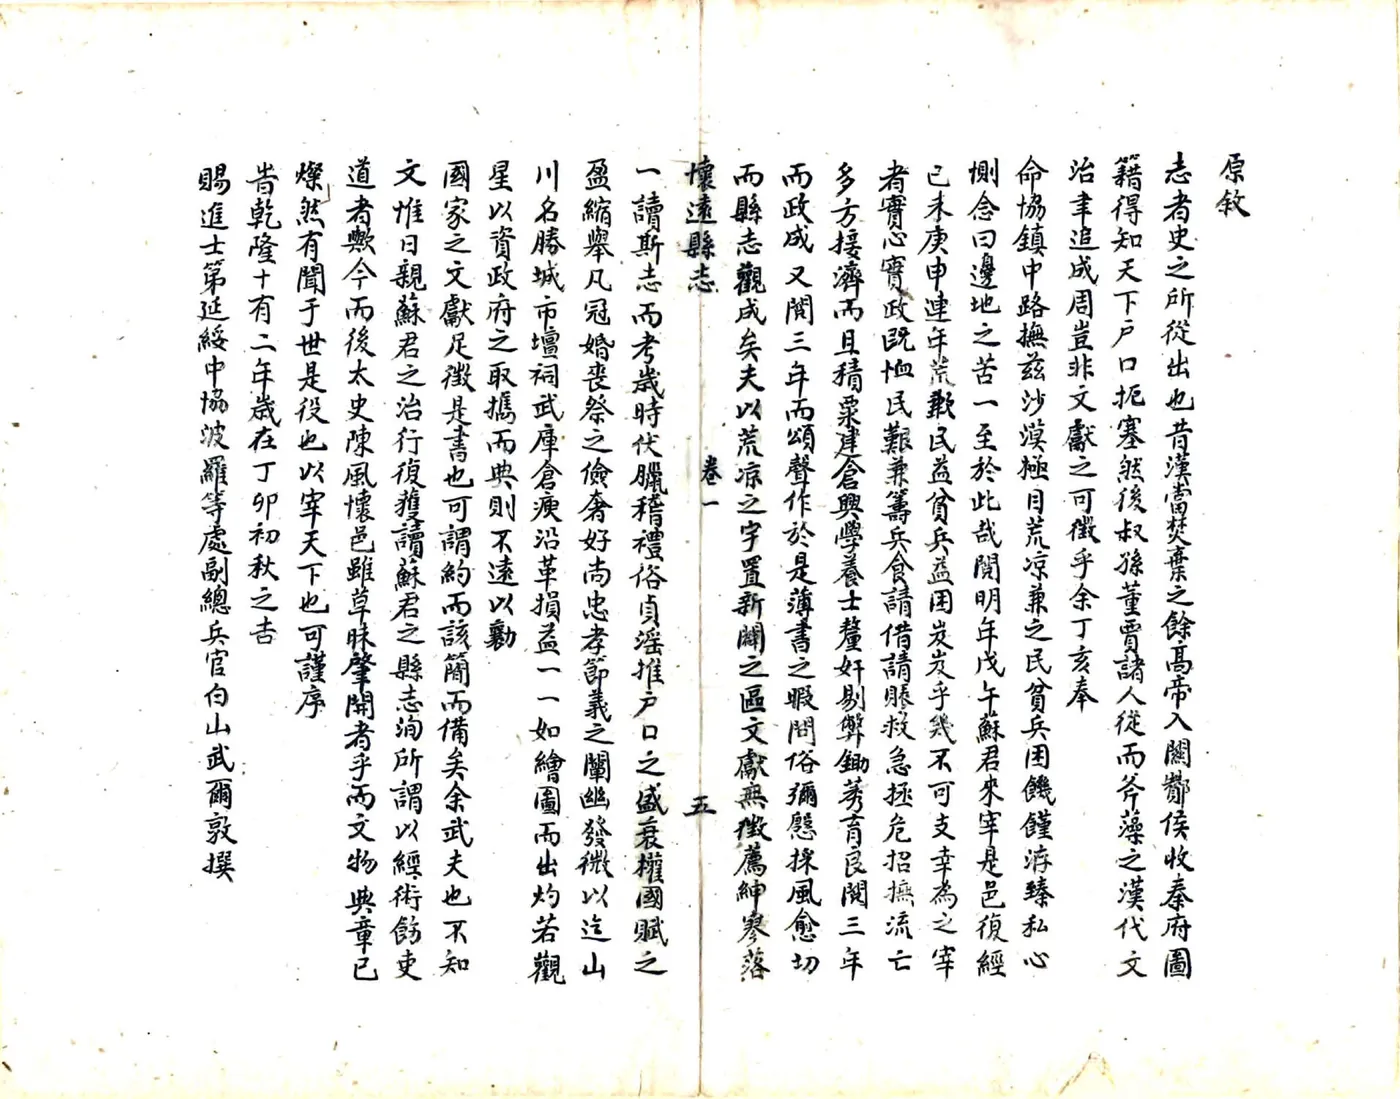 原敘
志者史之所從出也昔漢當焚棄之餘高帝入關酇侯收秦府圖
籍得知天下戶口扼塞然後叔孫董賈諸人從而斧藻之漢代文
治聿追成周豈非文獻之可徵乎余丁亥奉
命協鎮中路撫兹沙漠極目荒凉兼之民貧兵困饑饉洊臻私心
惻念曰邊地之苦一至於此哉閱明年戊午蘇君來宰是邑復經
已未庚申連年荒歉民益貧兵益困岌岌乎幾不可支幸為之宰
者實心實政既恤民艱兼籌兵食請借請賑救急拯危招撫流亡
多方接濟而且積粟建倉興學養士釐奸剔弊鋤莠育良閱三年
而政成又閱三年而頌聲作於是薄書之暇問俗彌慇採風愈切
而縣志觀成矣夫以荒凉之宇置新闢之區文獻無徵薦紳寥落
懷遠縣志 卷一 五
一讀斯志而考歲時伏臘稽禮俗貞滛推戶口之盛衰權國賦之
盈縮舉凡冠婚喪祭之儉奢好尚忠孝節義之闡幽發微以迄山
川名勝城市壇祠武庫倉庾沿革損益一一如繪圖而出灼若觀
星以資政府之取攜而典則不遠以勷
國家之文獻足徵是書也可謂約而該簡而備矣余武夫也不知
文惟日親蘇君之治行復獲讀蘇君之縣志洵所謂以經術餙吏
道者歟今而後太史陳風懷邑雖草昧肇開者乎而文物典章已
燦然有聞于世是役也以宰天下也可謹序
旹乾隆十有二年歲在丁卯初秋之吉
賜進士第延綏中協波羅等處副總兵官白山武爾敦撰